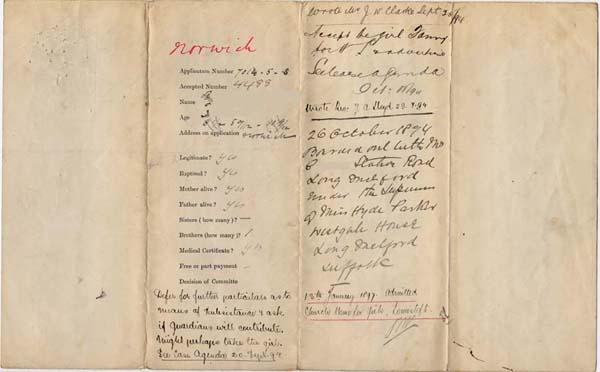 Norwich
Application Number 7014-5-6
Accepted Number 4499
Name
Age
Address on application Norwich
Legitimate? Yes
Baptized? Yes
Mother alive? Yes
Father alive? Yes
Sisters (how many)? —
Brothers (how many)? 1
Medical Certificate? Yes
Free or part payment —
Decision of Committee
Defer for further particulars as to
means of subsistence & ask
if Guardians will contribute.
Might perhaps take the girl.
See Case Agenda 20. Sept. 94
Wrote Mr J. W. Clarke Sept 94
Accept the girl Fanny
for
See case agenda
Oct. 94
Wrote Rev. J. A. 94
26 October 1894
Boarded out with Mrs
Station Road
Long Melford
under the supervn
of Miss Hyde Parker
Westgate House
Long Melford
Suffolk
12th January 1897. Admitted
Church Home for Girls, Lowestoft.